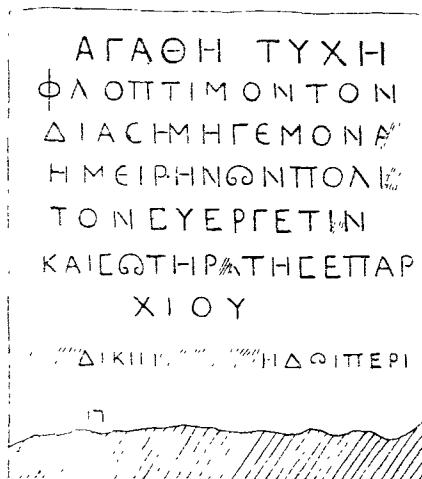 ΑΓΑΘΗ ΤΥΧΗ
ΦΛΟΠΤΙΜΟΝΤΟΝ
ΔΙΑϹΗΜΗΓΕΜΟΝΑ
ΗΜΕΙΡΗΝΩΝΠΟΛΙ
ΤΟΝΕΥΕΡΓΕΤΙΝ
ΚΑΙϹΩΤΗΡΑΤΗϹΕΠΑΡ
ΧΙΟΥ
ΔΙΚΙΙ ΗΔΩΙΠΕΡΙ